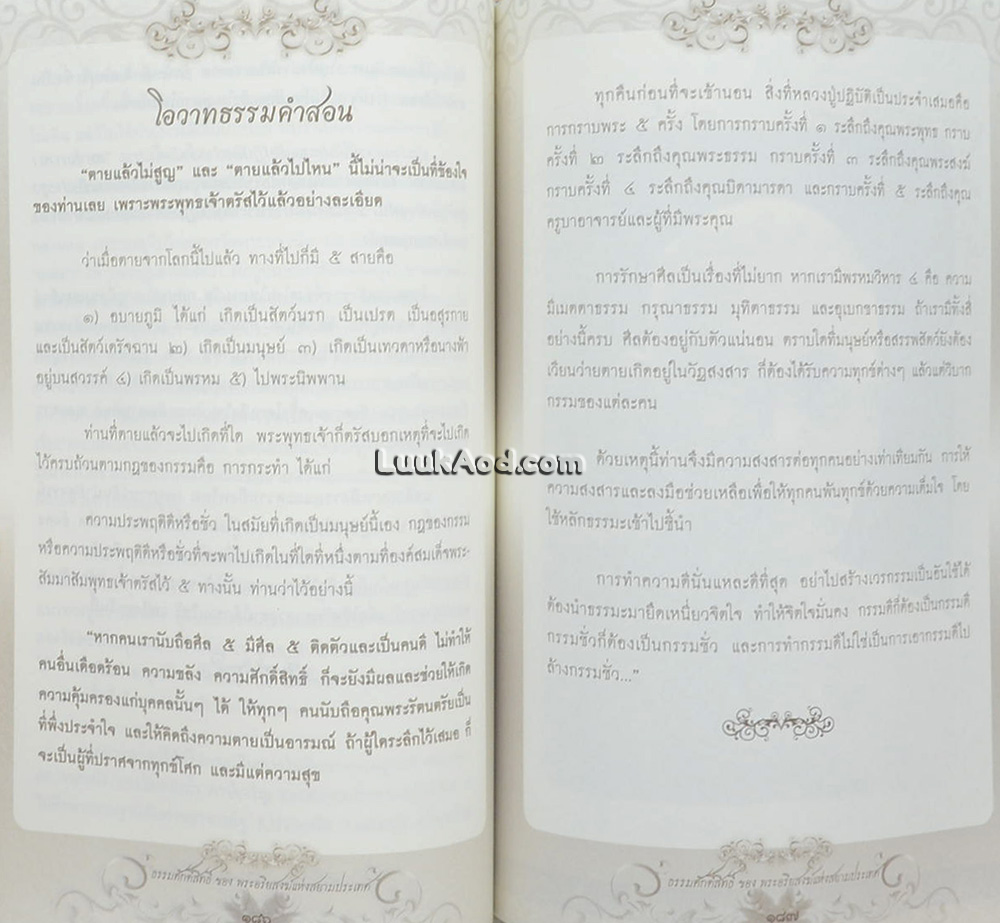 โอวาทธรรมคำสอน
“ตายแล้วไม่สูญ” และ “ตายแล้วไปไหน” นี้ไม่น่าจะเป็นที่ข้องใจ
ของท่านเลย เพราะพระพุทธเจ้าตรัสไว้แล้วอย่างละเอียด
ว่าเมื่อตายจากโลกนี้ไปแล้ว ทางที่ไปก็มี ๕ สายคือ
๑) อบายภูมิ ได้แก่ เกิดเป็นสัตว์นรก เป็นเปรต เป็นอสุรกาย
และเป็นสัตว์เดรัจฉาน ๒) เกิดเป็นมนุษย์ ๓) เกิดเป็นเทวดาหรือนางฟ้า
อยู่บนสวรรค์ ๔) เกิดเป็นพรหม ๕) ไปพระนิพพาน
ท่านที่ตายแล้วจะไปเกิดที่ใด พระพุทธเจ้าก็ตรัสบอกเหตุที่จะไปเกิด
ไว้ครบถ้วนตามกฎของกรรมคือ การกระทำ ได้แก่
ความประพฤติดีหรือชั่ว ในสมัยที่เกิดเป็นมนุษย์นี้เอง กฎของกรรม
หรือความประพฤติดีหรือชั่วที่จะพาไปเกิดในที่ใดที่หนึ่งตามที่องค์สมเด็จพระ-
สัมมาสัมพุทธเจ้าตรัสไว้ ๕ ทางนั้น ท่านว่าไว้อย่างนี้
“หากคนเรานับถือศีล ๕ มีศีล ๕ ติดตัวและเป็นคนดี ไม่ทำให้
คนอื่นเดือดร้อน ความขลัง ความศักดิ์สิทธิ์ ก็จะยังมีผลและช่วยให้เกิด
ความคุ้มครองแก่บุคคลนั้นๆ ได้ ให้ทุกๆ คนนับถือคุณพระรัตนตรัยเป็น
ที่พึ่งประจำใจ และให้คิดถึงความตายเป็นอารมณ์ ถ้าผู้ใดระลึกไว้เสมอ ก็
จะเป็นผู้ที่ปราศจากทุกข์โศก และมีแต่ความสุข
ธรรมศักดิ์สิทธิ์ ของ พระอริยสงฆ์แห่งสยามประเทศ
๑๘๖
ทุกคืนก่อนที่จะเข้านอน สิ่งที่หลวงปู่ปฏิบัติเป็นประจำเสมอคือ
การกราบพระ ๕ ครั้ง โดยการกราบครั้งที่ ๑ ระลึกถึงคุณพระพุทธ กราบ
ครั้งที่ ๒ ระลึกถึงคุณพระธรรม กราบครั้งที่ ๓ ระลึกถึงคุณพระสงฆ์
กราบครั้งที่ ๔ ระลึกถึงคุณบิดามารดา และกราบครั้งที่ ๕ ระลึกถึงคุณ
ครูบาอาจารย์และผู้ที่มีพระคุณ
การรักษาศีลเป็นเรื่องที่ไม่ยาก หากเรามีพรหมวิหาร ๔ คือ ความ
มีเมตตาธรรม กรุณาธรรม มุทิตาธรรม และอุเบกขาธรรม ถ้าเรามีทั้งสี่
อย่างนี้ครบ ศีลต้องอยู่กับตัวแน่นอน ตราบใดที่มนุษย์หรือสรรพสัตว์ยังต้อง
เวียนว่ายตายเกิดอยู่ในวัฏสงสาร ก็ต้องได้รับความทุกข์ต่างๆ แล้วแต่วิบาก
กรรมของแต่ละคน
ด้วยเหตุนี้ท่านจึงมีความสงสารต่อทุกคนอย่างเท่าเทียมกัน การให้
ความสงสารและลงมือช่วยเหลือเพื่อให้ทุกคนพ้นทุกข์ด้วยความเต็มใจ โดย
ใช้หลักธรรมะเข้าไปชี้นำ
การทำความดีนั่นแหละดีที่สุด อย่าไปสร้างเวรกรรมเป็นอันใช้ได้
ต้องนำธรรมะมายึดเหนี่ยวจิตใจ ทำให้จิตใจมั่นคง กรรมดีก็ต้องเป็นกรรมดี
กรรมชั่วก็ต้องเป็นกรรมชั่ว และการทำกรรมดีไม่ใช่เป็นการเอากรรมดีไป
ล้างกรรมชั่ว...”
ธรรมศักดิ์สิทธิ์ ของ พระอริยสงฆ์แห่งสยามประเทศ
๑๘๗
LuukAod.com